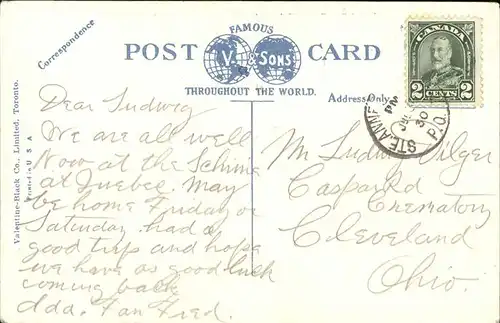 Correspondence
FAMOUS
POST V. & SONS CARD
THROUGHOUT THE WORLD.
Address Only
Valentine-Black Co., Limited, Toronto.
Printed in U S A
CANADA
2 CENTS 2
STE. ANNE
PM
JUL
30
P.Q.
Dear Ludwig
We are all well
Now at the Schrine
at Quebec. May
be home Friday or
Saturday had a
good trip and hope
we have as good luck
coming back
Fred.
Mr Ludwig Hilger
Crematory
Cleveland
Ohio.